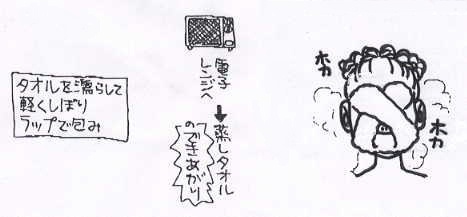 タオルを濡らして
軽くしぼり
ラップで包み
電子
レンジへ
蒸しタオル
のできあがり
ホカ
ホカ